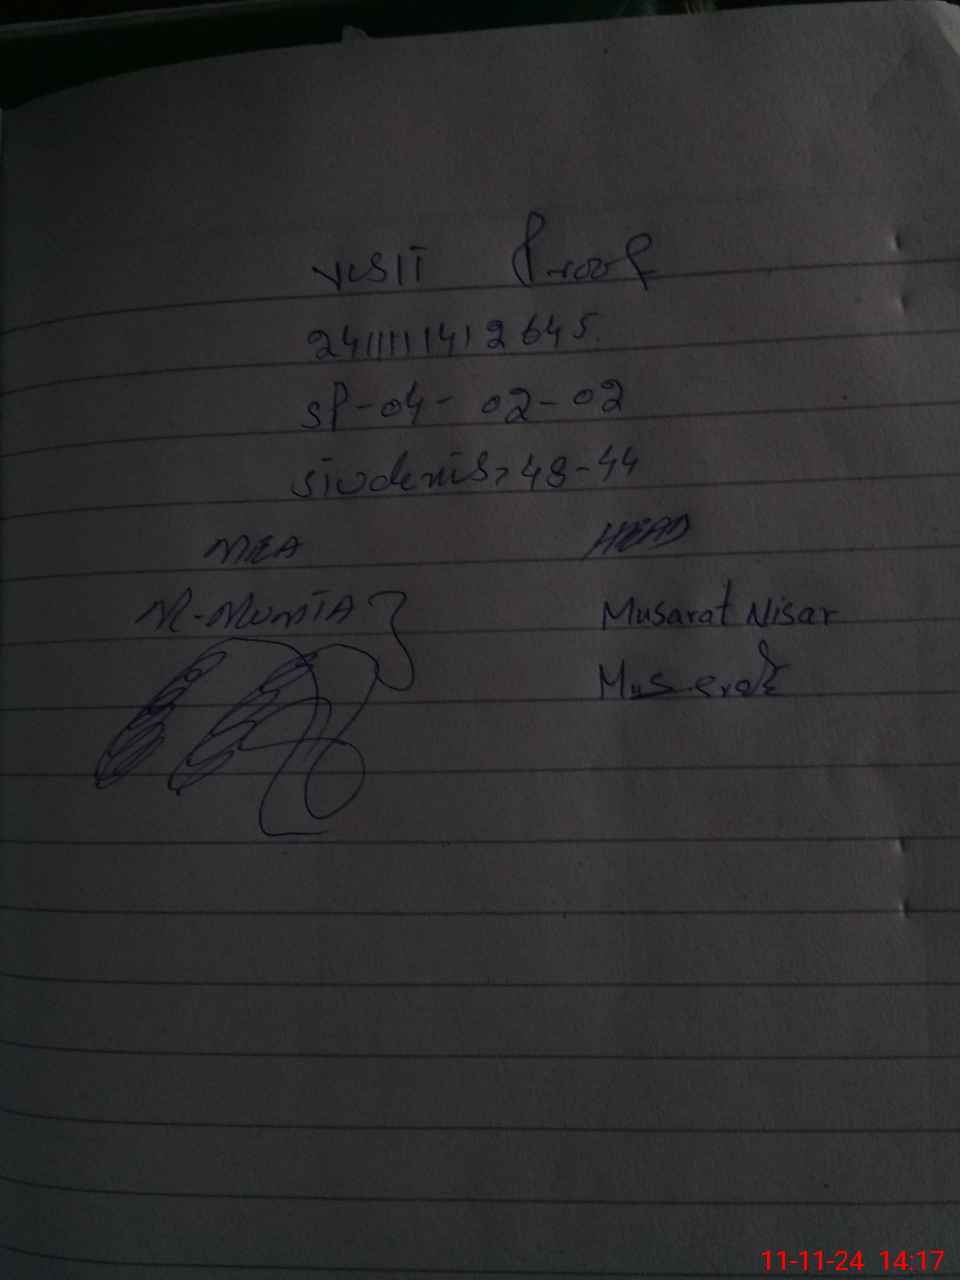 VISIT Proof
241111412645
SP-04-02-02
students, 48-44
MEA HEAD
M-MUMTAZ Musarat Nisar
Musarat
11-11-24 14:17